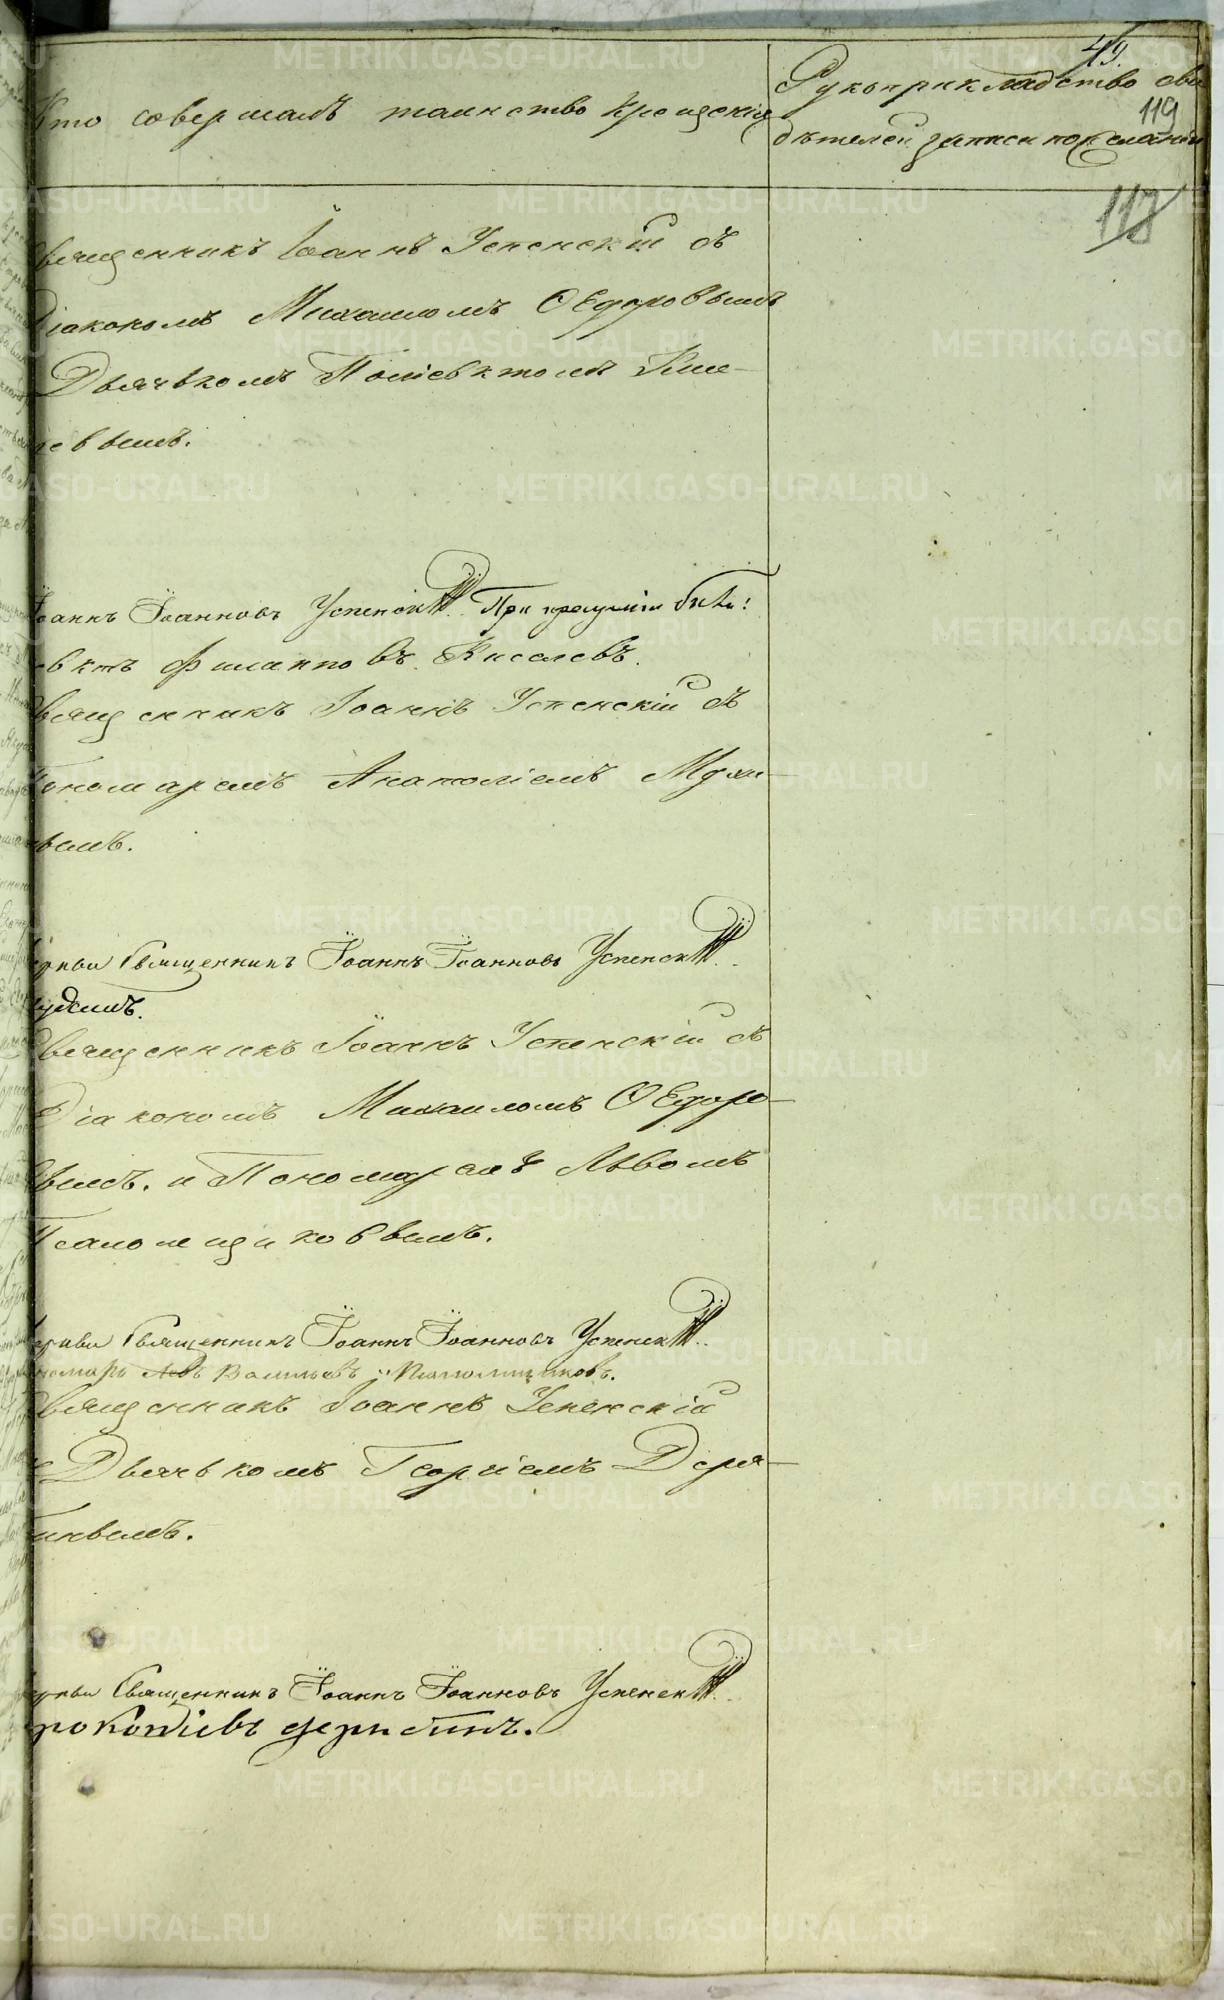 49.
Кто совершалъ таинство Крещенія
Рукоприкладство сви
119
дѣтелей записи по желанію
118
Священникъ Іоаннъ Успенскій съ
Діакономъ Михаиломъ Ѳедоровымъ
Дьячькомъ Поліевктомъ Кисе-
левымъ.
Іоаннъ Іоанновъ Успенскій. При крещеніи былъ:
евктъ Филипповъ Киселевъ.
Священникъ Іоаннъ Успенскій съ
Пономаремъ Анатоліемъ
вымъ.
церкви Священникъ Іоаннъ Іоанновъ Успенскій.
Священникъ Іоаннъ Успенскій съ
Діакономъ Михаиломъ Ѳедоро-
вымъ. и Пономаремъ Львомъ
Псаломщиковымъ.
церкви Священникъ Іоаннъ Іоанновъ Успенскій.
номарь Левъ Васильевъ Псаломщиковъ.
Священникъ Іоаннъ Успенскій
съ Дьячькомъ Георгіемъ Деря-
бинымъ.
церкви Священникъ Іоаннъ Іоанновъ Успенскій.
Прокопіевъ Дерябинъ.
METRIKI.GASO-URAL.RU